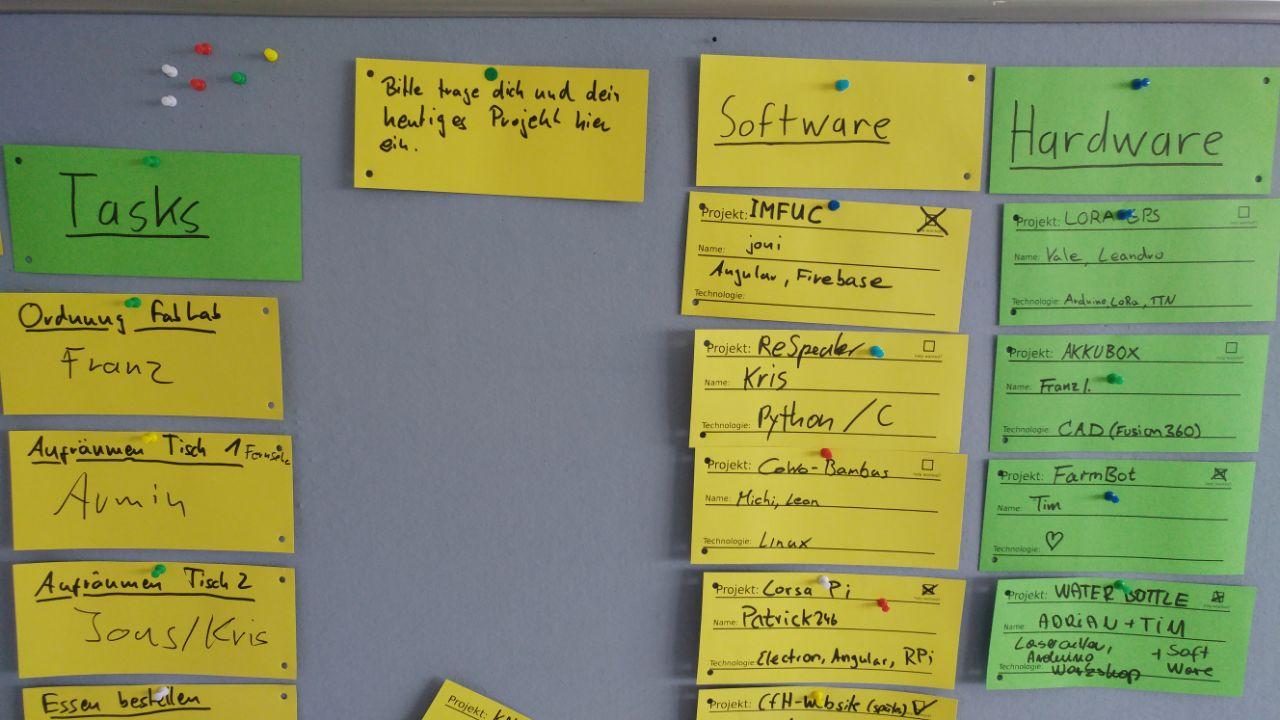 Tasks
Ordnung FabLab
Franz
Aufräumen Tisch 1
Armin
Aufräumen Tisch 2
Jons/Kris
Essen bestellen
Bitte trage dich und dein
heutiges Projekt hier
ein.
Projekt:
Software
Projekt: IMFUC
Name: joni
Angular, Firebase
Technologie:
Projekt: ReSpeaker
help wanted?
Name: Kris
Technologie: Python / C
Projekt: Cowo-Bambus
help wanted?
Name: Michi, Leon
Technologie: Linux
Projekt: Corsa Pi
Name: Patrick246
Technologie: Electron, Angular, RPi
Projekt: CfH-Website (später)
Hardware
Projekt: LORA GPS
help wanted?
Name: Vale, Leandro
Technologie: Arduino, LoRa, TTN
Projekt: AKKUBOX
help wanted?
Name: Franz l.
Technologie: CAD (Fusion360)
Projekt: FarmBot
help wanted?
Name: Tim
Technologie: ♡
Projekt: WATER BOTTLE
help wanted?
Name: ADRIAN + TIM
Arduino + Soft
Technologie: Workshop Ware